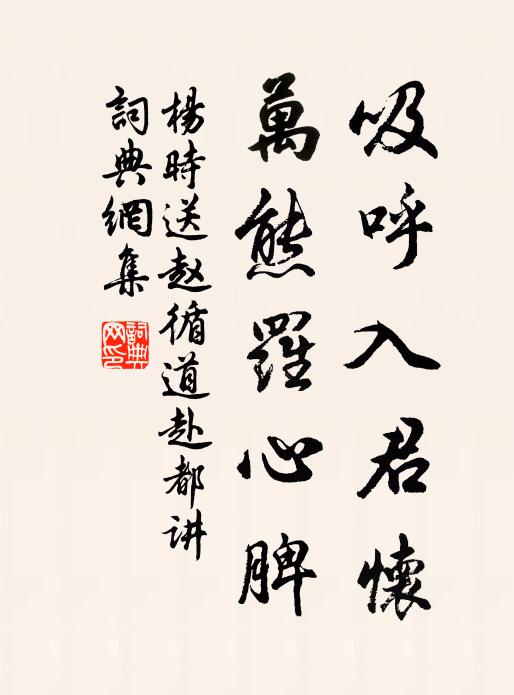 吸呼入君懷
萬態羅心脾
楊時送赵循道赴都讲
詞典網集
詞典网印